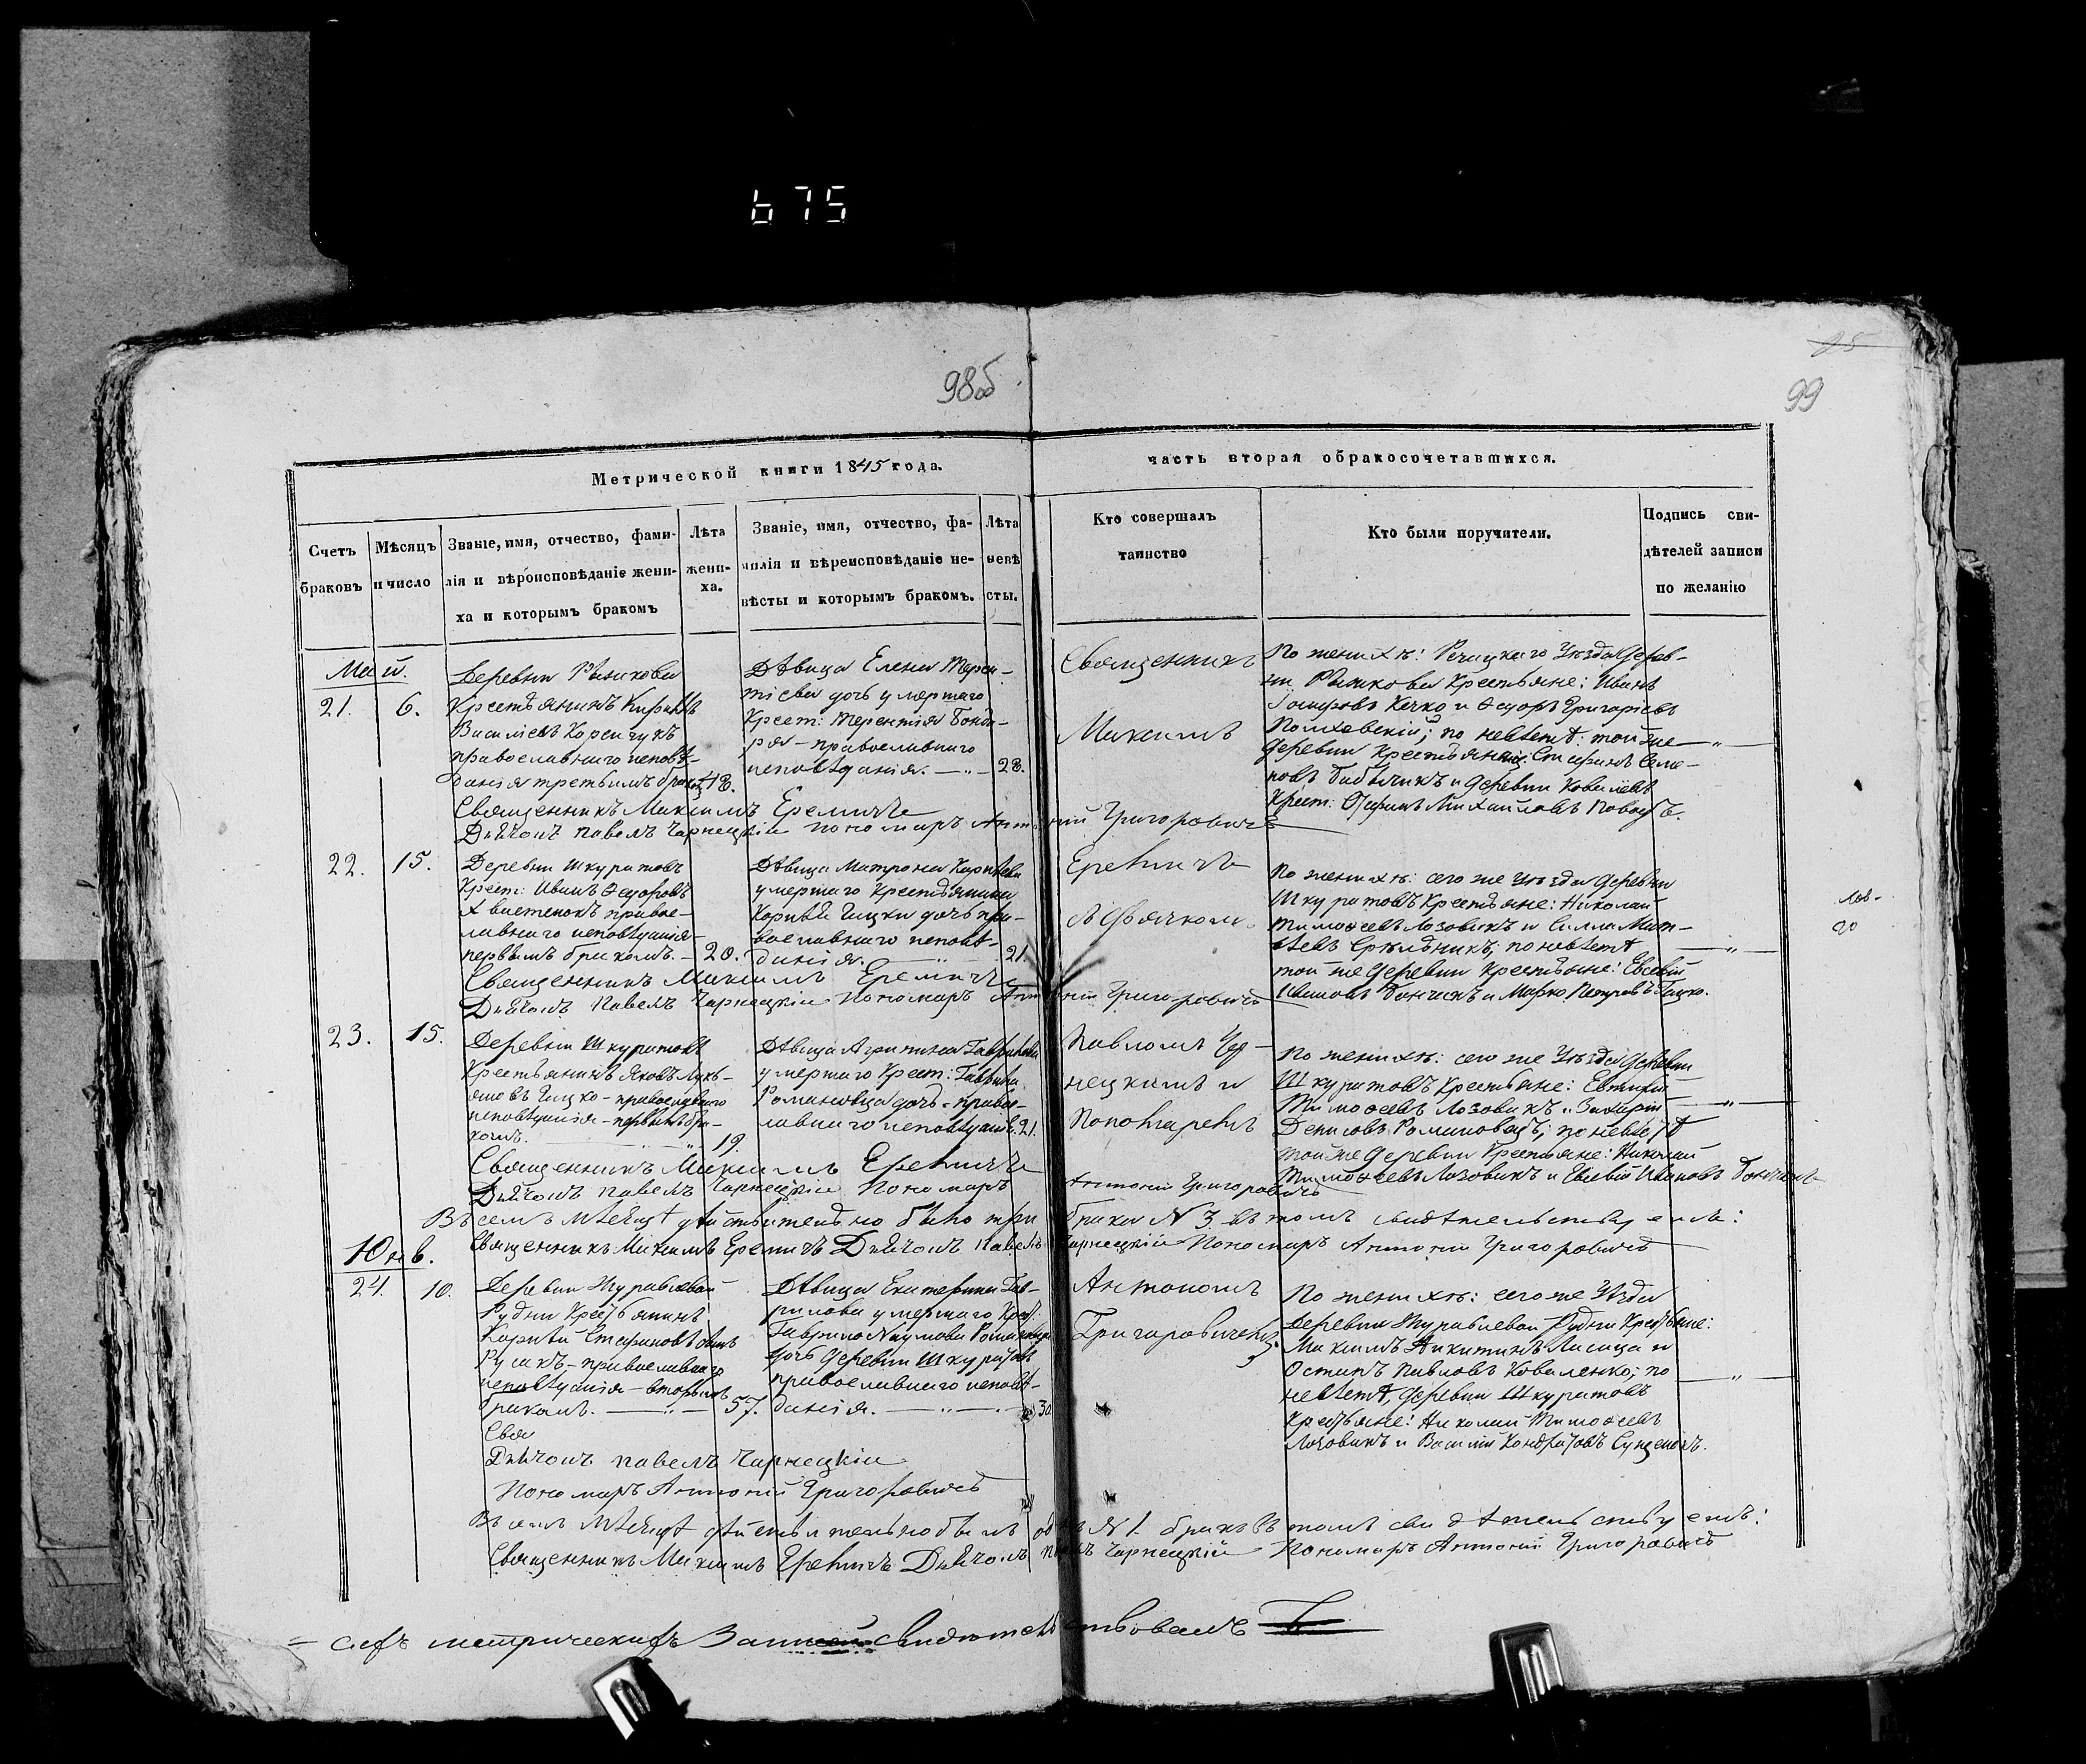 675
98об
25
99
Метрической книги 1845 года.
часть вторая о бракосочетавшихся.
Счетъ
браковъ
Мѣсяцъ
и число
Званіе, имя, отчество, фами-
лія и вѣроисповѣданіе жени-
ха и которымъ бракомъ
Лѣта
жени-
ха.
Званіе, имя, отчество, фа-
милія и вѣроисповѣданіе не-
вѣсты и которымъ бракомъ.
Лѣта
невѣ
сты.
Кто совершалъ
таинство
Кто были поручители.
Подпись сви-
дѣтелей записи
по желанію
Май.
21.
6.
Деревни
Крестьянинъ
Василіевъ
православнаго исповѣ-
данія третьимъ 48.
Дѣвица Елена Терен-
тіева дочь умершаго
Крест: Терентія Бонда-
ря – православнаго
исповѣданія. – „ – 28.
Священникъ
Максимъ
По женихѣ: Речицкаго Уѣзда дерев-
ни Крестьяне: Иванъ
Кечко и Ѳедоръ Григоріевъ
по невѣстѣ: той же
деревни Стефанъ Семе-
новъ и деревни
Крест: Михайловъ
Священникъ Максимъ Еремичъ
Дьячокъ Павелъ Чарнецкій Пономарь Антоній Григоровичъ
22.
15.
Деревни Шкуратовъ
Крест: Иванъ Ѳедоровъ
правос-
лавнаго исповѣданія
первымъ бракомъ. – 20.
Дѣвица Матрона Карнѣева
умершаго Крестьянина
Корнѣя Гицки дочь пра-
вославнаго исповѣ-
данія. – „ – 21.
Еремичъ
съ Дьячкомъ
По женихѣ: сего же Уѣзда деревни
Шкуратовъ Крестьяне: Николай
Тимоѳеевъ Лозовикъ и
по невѣстѣ
той же деревни Крестьяне: Евсевій
Ивановъ Бончикъ и Марко Петровъ Гицко.
Лоз-
20
Священникъ Максимъ Еремичъ
Дьячокъ Павелъ Чарнецкій Пономарь Антоній Григоровичъ
23.
15.
Деревни Шкуратовъ
Крестьянинъ Яковъ Лукь-
яновъ Гицко – православнаго
исповѣданія – первымъ бра-
комъ. – „ 19.
Дѣвица Агрипина Гаврилова
умершаго Крест: Гаврила
Романовца дочь – правос-
лавнаго исповѣданія. 21.
Павломъ Чар-
нецкимъ и
Пономаремъ
По женихѣ: сего же Уѣзда деревни
Шкуратовъ Крестьяне: Евтихій
Тимоѳеевъ Лозовикъ и Захарій
Денисовъ Романовецъ; по невѣстѣ
той же деревни Крестьяне: Николай
Тимоѳеевъ Лозовикъ и Евсевій Ивановъ Бончикъ
Священникъ Максимъ Еремичъ
Дьячокъ Павелъ Чарнецкій Пономарь Антоній Григоровичъ
Въ семъ Мѣсяцѣ дѣйствительно было три брака N 3 въ томъ свидѣтельствуемъ:
Священникъ Максимъ Еремичъ Дьячокъ Павелъ Чарнецкій Пономарь Антоній Григоровичъ
Юнь.
24.
10.
Деревни Журавлевой
Рудни Крестьянинъ
Корнѣй Стефановъ сынъ
Русакъ – православнаго
исповѣданія – вторымъ
бракомъ. – „ – 57.
Дѣвица Екатерина Гав-
рилова умершаго Крест:
Гаврила Наумова Романовца
дочь деревни Шкуратовъ
православнаго исповѣ-
данія. – „ – 30
Антономъ
Григоровичемъ.
По женихѣ: сего же Уѣзда
деревни Журавлевой Рудни Крестьяне:
Максимъ Никитинъ Лисица и
Остапъ Павловъ Коваленко; по
невѣстѣ, деревни Шкуратовъ
Крестьяне: Николай Тимоѳеевъ
Лозовикъ и Василій Кондратовъ
Свя
Дьячокъ Павелъ Чарнецкій
Пономарь Антоній Григоровичъ
Въ семъ Мѣсяцѣ дѣйствительно былъ N 1 бракъ въ томъ свидѣтельствуемъ:
Священникъ Максимъ Еремичъ Дьячокъ Чарнецкій Пономарь Антоній Григоровичъ
метрическихъ свидѣтельствовалъ